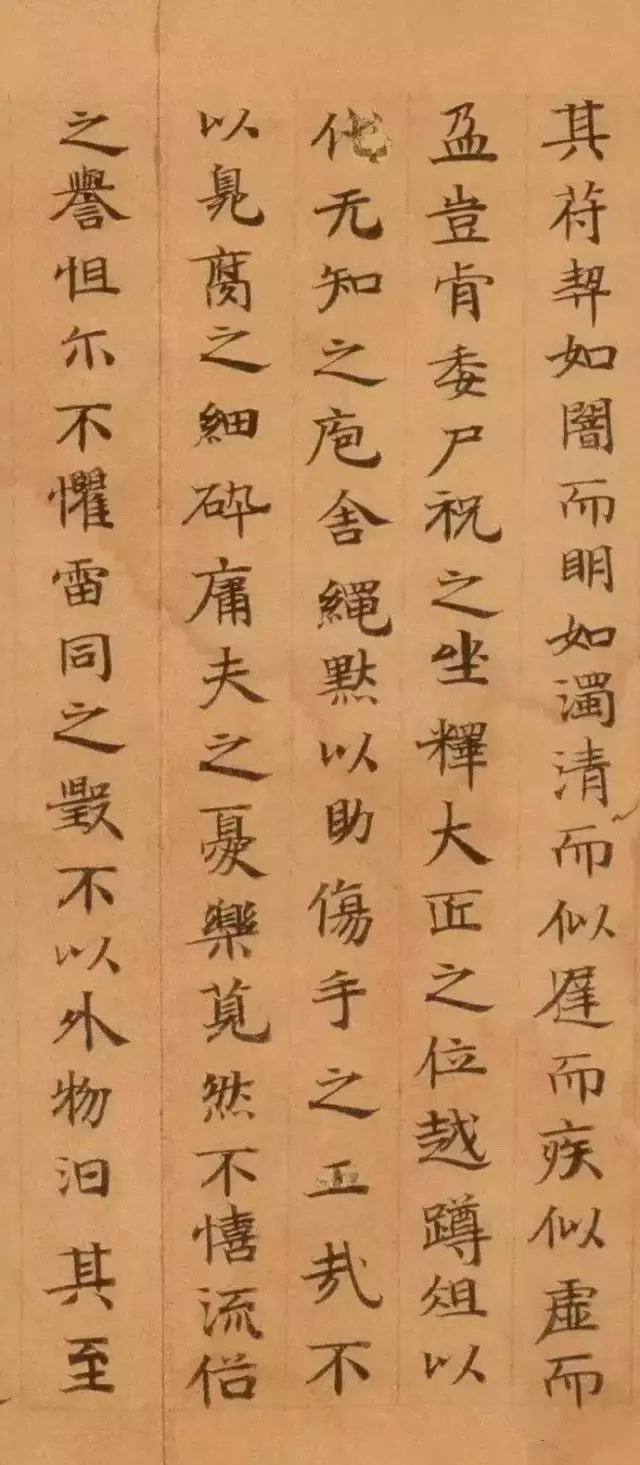 其苻契如闇而明如濁清而似遅而疾似虛而
盈豈肯委尸祝之坐釋大匠之位越蹲俎以
代无知之庖舍繩默以助傷手之工哉不
以臭腐之細碎庸夫之憂樂莧然不憘流俗
之譽怛尔不懼雷同之毀不以外物汩其至